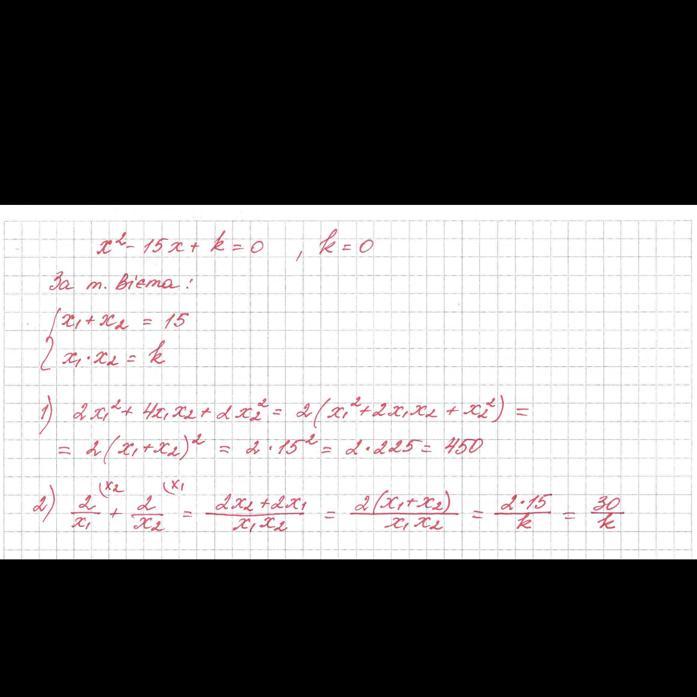 x² - 15x + k = 0 , k = 0
За т. Вієта:
{ x₁ + x₂ = 15
x₁ · x₂ = k
1) 2x₁² + 4x₁x₂ + 2x₂² = 2(x₁² + 2x₁x₂ + x₂²) =
= 2(x₁+x₂)² = 2·15² = 2·225 = 450
2) 2/x₁ (x₂ + 2/x₂ (x₁ = (2x₂ + 2x₁)/(x₁x₂) = 2(x₁+x₂)/(x₁x₂) = 2·15/k = 30/k